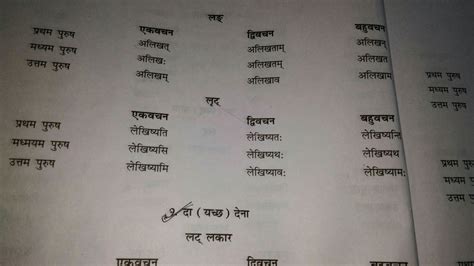 लङ्
एकवचन द्विवचन बहुवचन
प्रथम पुरुष अलिखत् अलिखताम् अलिखन्
मध्यम पुरुष अलिखः अलिखतम् अलिखत
उत्तम पुरुष अलिखम् अलिखाव अलिखाम
लृट्
एकवचन द्विवचन बहुवचन
प्रथम पुरुष लेखिष्यति लेखिष्यतः लेखिष्यन्ति
मध्मयम पुरुष लेखिष्यसि लेखिष्यथः लेखिष्यथ
उत्तम पुरुष लेखिष्यामि लेखिष्यावः लेखिष्यामः
दा ( यच्छ ) देना
लट् लकार
एकवचन द्विवचन बहुवचन
प्रथम पुरुष
मध्यम पुरुष
उत्तम पुरुष